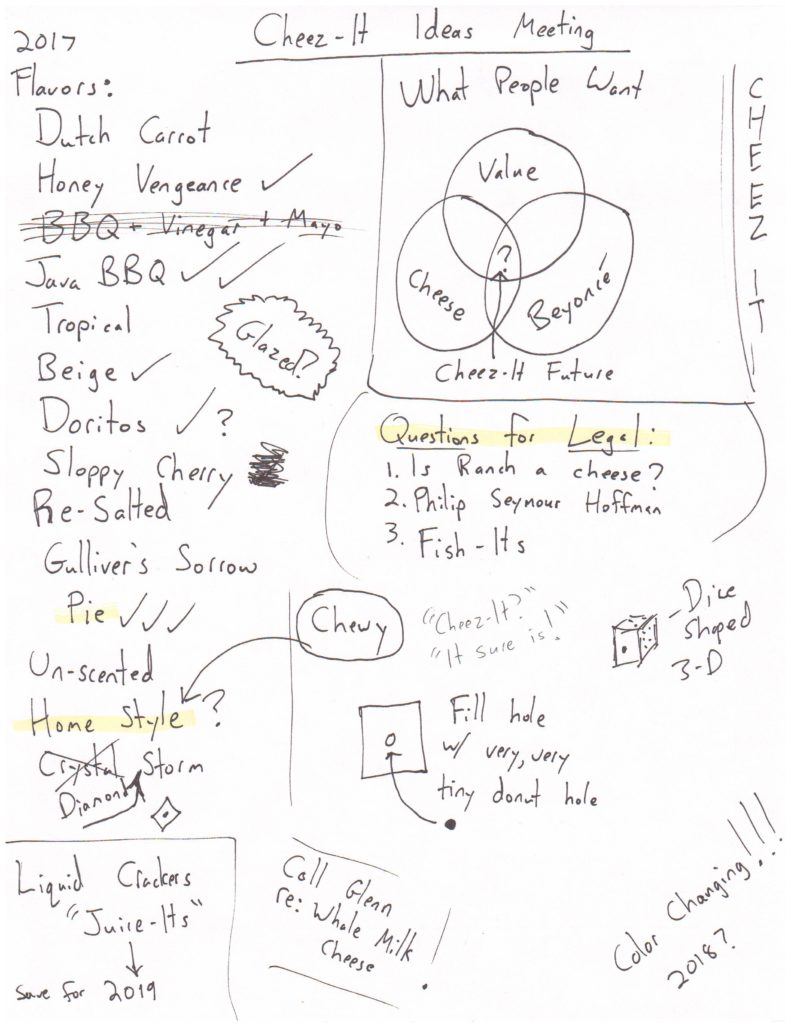 Cheez-It Ideas Meeting
2017
Flavors:
Dutch Carrot
Honey Vengeance ✓
BBQ + Vinegar + Mayo
Java BBQ ✓✓
Tropical
Glazed?
Beige ✓
Doritos ✓ ?
Sloppy Cherry
Re-Salted
Gulliver's Sorrow
Pie ✓✓✓
Un-scented
Home Style ?
Crystal Storm
Diamond
What People Want
Value
Cheese
?
Beyoncé
Cheez-It Future
CHEEZ IT!
Questions for Legal:
1. Is Ranch a cheese?
2. Philip Seymour Hoffman
3. Fish-Its
Chewy
"Cheez-It?"
"It sure is!"
Dice
shaped
3-D
Fill hole
w/ very, very
tiny donut hole
Liquid Crackers
"Juice-Its"
save for 2019
Call Glenn
re: Whole Milk
Cheese
Color Changing!!!
2018?